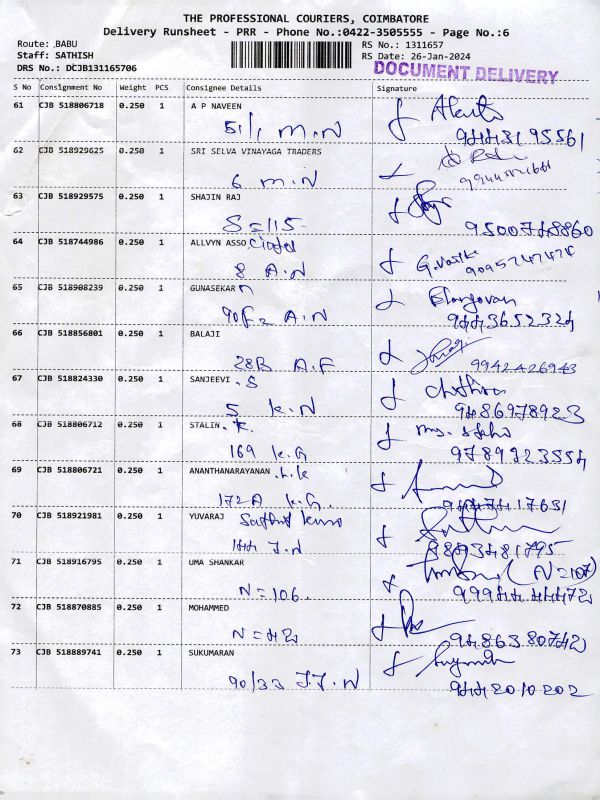 THE PROFESSIONAL COURIERS, COIMBATORE
Delivery Runsheet - PRR - Phone No.:0422-3505555 - Page No.:6
Route: BABU RS No.: 1311657
Staff: SATHISH RS Date: 26-Jan-2024
DRS No.: DCJB131165706 DOCUMENT DELIVERY
S No Consignment No Weight PCS Consignee Details Signature
61 CJB 518806718 0.250 1 A P NAVEEN
51/1 M.N
62 CJB 518929625 0.250 1 SRI SELVA VINAYAGA TRADERS
6 M.N
63 CJB 518929575 0.250 1 SHAJIN RAJ
S=115 9500748860
64 CJB 518744986 0.250 1 ALLVYN ASSOCiates
8 A.N 9095747474
65 CJB 518908239 0.250 1 GUNASEKARN Elangovan
90F2 A.N 9443652324
66 CJB 518856801 0.250 1 BALAJI
28B A.F 9942426943
67 CJB 518824330 0.250 1 SANJEEVI .S Chithra
5 K.N 9486978923
68 CJB 518806712 0.250 1 STALIN .K.
169 K.G 9789923554
69 CJB 518806721 0.250 1 ANANTHANARAYANAN
172-A K.G. 9447417631
70 CJB 518921981 0.250 1 YUVARAJ
144 J.N
71 CJB 518916795 0.250 1 UMA SHANKAR (N=107)
N=106. 9994444472
72 CJB 518870885 0.250 1 MOHAMMED
N=42 9486380742
73 CJB 518889741 0.250 1 SUKUMARAN
90/33 J.J.N 9442010202